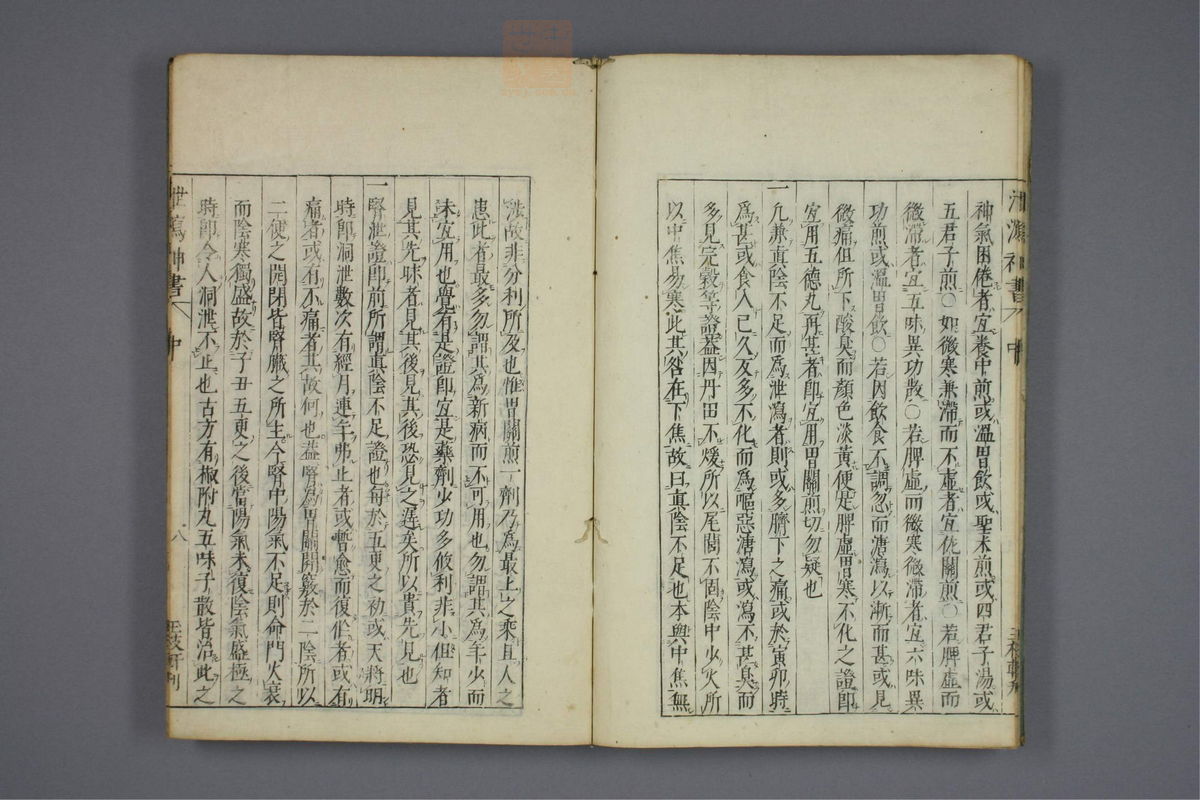 神氣困倦者宜養中煎或溫胃飲或聖术煎或四君子湯或
五君子煎○如微寒兼滯而不虛者宜佐關煎○若脾虛而
微滯者宜五味異功散○若脾虛而微寒微滯者宜六味異
功煎或溫胃飲○若因飲食不調忽而溏瀉以漸而甚或見
微痛但所下酸臭而顏色淡黃便是脾虛胃寒不化之證即
宜用五德丸再甚者即宜用胃關煎切勿疑也
一凡兼真陰不足而為泄瀉者則或多臍下之痛或於寅卯時
為甚或食入已久反多不化而為嘔惡溏瀉或瀉不甚臭而
多見完穀等證蓋因丹田不煖所以尾閭不固陰中少火所
以中焦易寒此其咎在下焦故曰真陰不足也本與中焦無
涉故非分利所及也惟胃關煎一劑乃為最上之乘且人之
患此者最多勿謂其為新病而不可用也勿謂其為年少而
未宜用也覺有是證即宜是藥劑少功多攸利非小但知者
見其先昧者見其後見其後恐見之遲矣所以貴先見也
一腎泄證即前所謂真陰不足證也每於五更之初或天將明
時即洞泄數次有經月連年弗止者或暫愈而復作者或有
痛者或有不痛者其故何也蓋腎為胃關開竅於二陰所以
二便之開閉皆腎臟之所主今腎中陽氣不足則命門火衰
而陰寒獨盛故於子丑五更之後當陽氣未復陰氣盛極之
時即令人洞泄不止也古方有椒附丸五味子散皆治此之
泄瀉神書
中
八